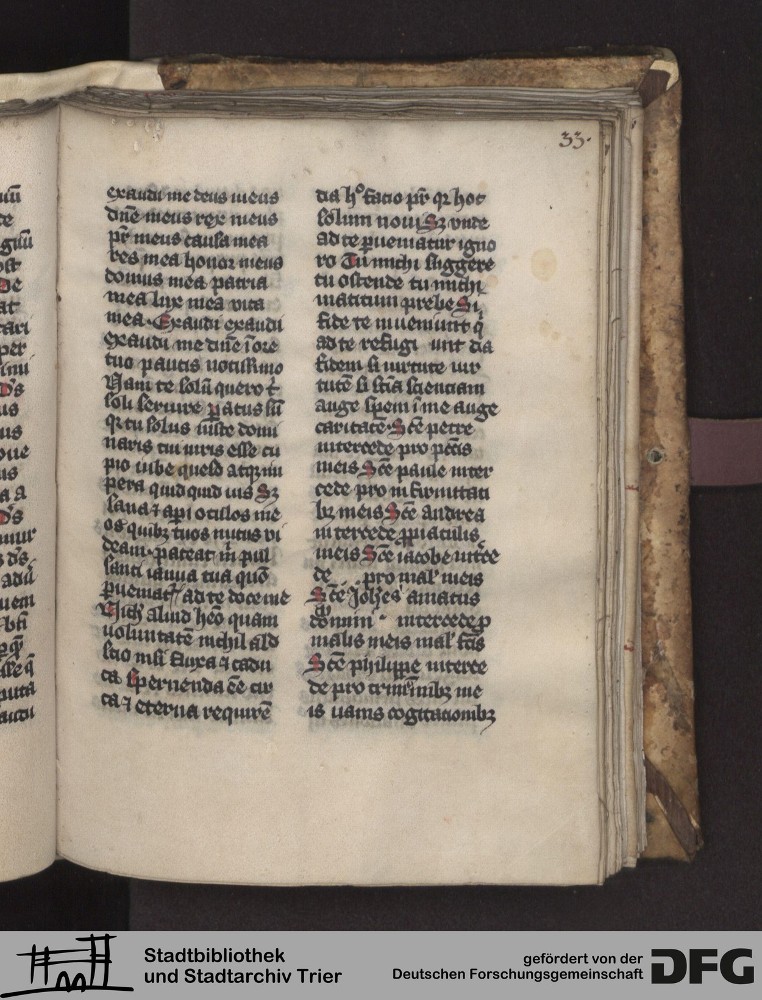 33.
exaudi me deus meus
dn̄e meus rex meus
pr̄ meus causa mea
res mea honor meus
domus mea patria
mea lux mea vita
mea. Exaudi exaudi
exaudi me dn̄e ī ore
tuo paucis notissimo
Nam te solū quero
soli seruire patus sū
qr tu solus iuste domi
naris tui iuris esse cu
pio iube queso atqz im
pera quid quid uis Sz
sana ⁊ api oculos me
os quibz tuos nutus vi
deam. pateat m̄ pul
santi ianua tua quō
pueniat ad te doce me
aliud heō quam
uoluntatē nichil aliđ
scio nisi fluxa ⁊ cadu
ca spernenda ēē cer
ta ⁊ eterna requirē
dia hͦ facio pr̄ qr hoc
solum noui Sz vnde
ad te pueniatur igno
ro Tu michi suggere
tu ostende tu michi
uiaticum prebe Si
fide te inueniunt q̄
ad te refugi unt da
fidem si uirtute uir
tutē si sciā scienciam
auge spem ī me auge
caritatē Scē petre
intercede pro pccīs
meis Scē paule inter
cede pro infirmitati
bz meis Scē andrea
intercede p piaculis
meis Scē iacobe intce
de pro mal' meis
Scē Joħes amatus
domini intercede p
malis meis mal' fcīs
Scē philippe interce
de pro criminibz me
is uanis cogitacionibz
Stadtbibliothek
und Stadtarchiv Trier
gefördert von der
Deutschen Forschungsgemeinschaft
DFG